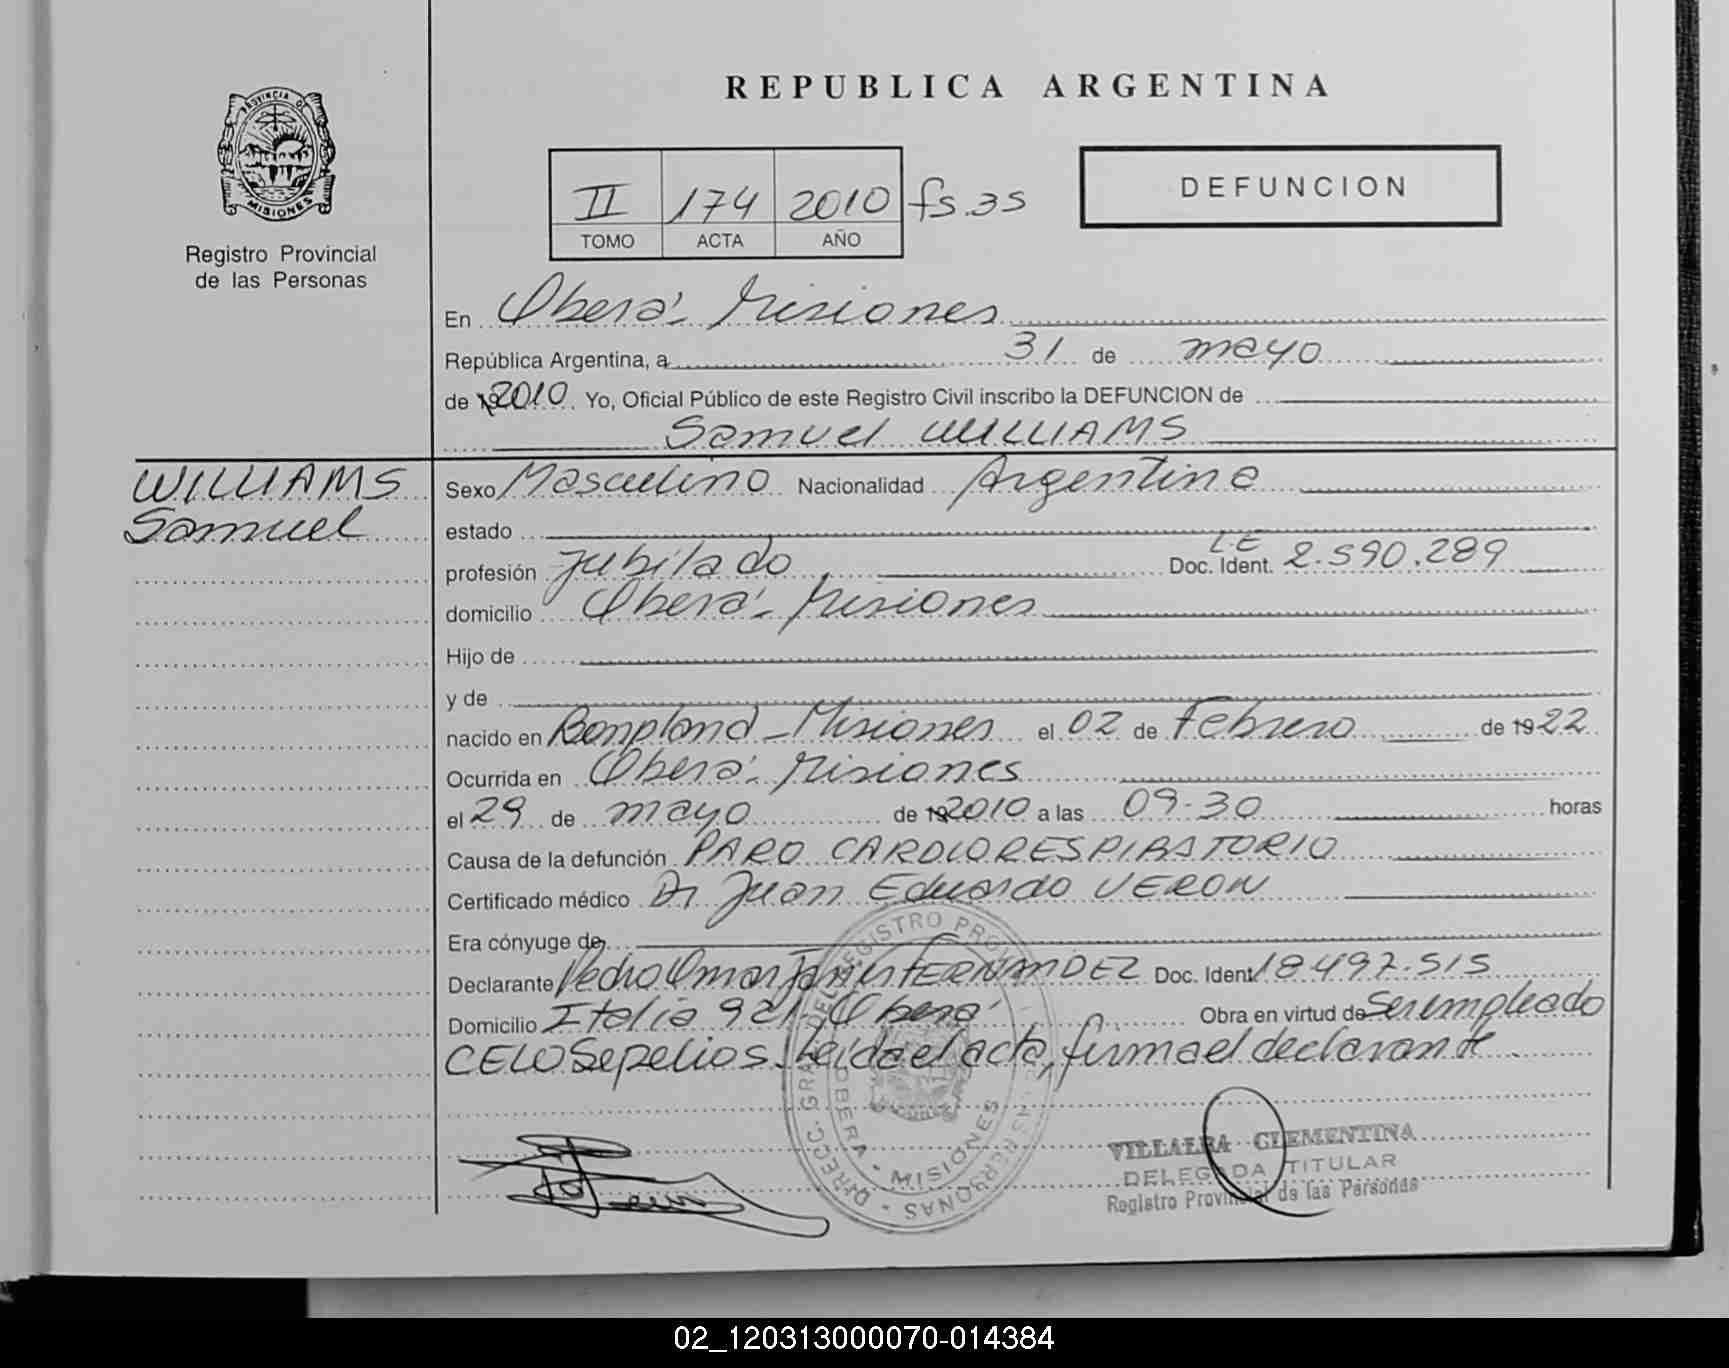 REPUBLICA ARGENTINA
PROVINCIA DE
MISIONES
Registro Provincial
de las Personas
II 174 2010 fs.35
TOMO ACTA AÑO
DEFUNCION
En Oberá - Misiones
República Argentina, a 31 de mayo
de 2010 Yo, Oficial Público de este Registro Civil inscribo la DEFUNCION de
Samuel WILLIAMS
WILLIAMS
Samuel
Sexo Masculino Nacionalidad Argentina
estado
profesión Jubilado, Doc. Ident. LE 2.590.289
domicilio Oberá - Misiones
Hijo de
y de
nacido en Bonpland - Misiones el 02 de Febrero de 1922
Ocurrida en Oberá - Misiones
el 29 de mayo de 2010 a las 09.30 horas
Causa de la defunción PARO CARDIORESPIRATORIO
Certificado médico Dr Juan Eduardo VERON
Era cónyuge de
Declarante Pedro Omar FERNANDEZ Doc. Ident. 18.497.515
Domicilio Italia 921 - Oberá Obra en virtud de Ser empleado
CELO Sepelios. Leída el acta, firma el declarante
DIRECC. GRAL. DEL REGISTRO PROVINCIAL DE LAS PERSONAS
OBERA - MISIONES
VILLALBA CLEMENTINA
DELEGADA TITULAR
Registro Provincial de las Personas
02_120313000070-014384